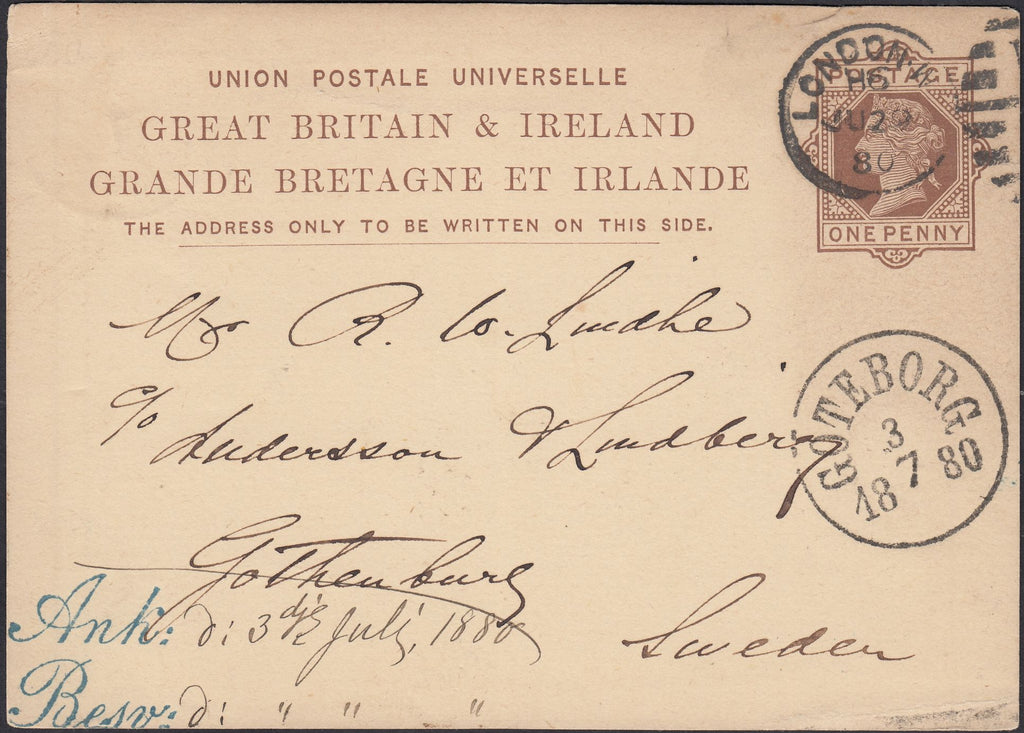 UNION POSTALE UNIVERSELLE
GREAT BRITAIN & IRELAND
GRANDE BRETAGNE ET IRLANDE
THE ADDRESS ONLY TO BE WRITTEN ON THIS SIDE.
POSTAGE
ONE PENNY
LONDON
H6
JU29
80
Mr R. W. Lindhe
c/o Andersson & Lindberg
GÖTEBORG
3
7
18 80
Gothenburg
Sweden
Ank: d: 3 dje Juli, 1880
Besv: d: " " "